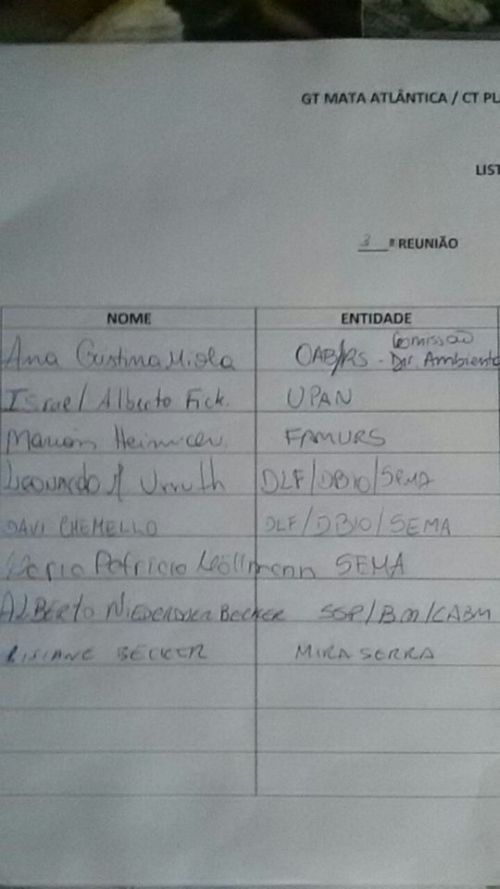 GT MATA ATLÂNTICA / CT PL
LIST
3ª REUNIÃO
NOME ENTIDADE
Ana Cristina Miola OAB/RS - Comissão Dir Ambiente
Israel Alberto Fick. UPAN
Marion Heinrich FAMURS
Leonardo M Urruth DLF/DBIO/SEMA
DAVI CHEMELLO DLF/DBIO/SEMA
Patricia Möllmann SEMA
ALBERTO NIEDERAUER BECKER SSP/BM/CABM
LISIANE BECKER MIRA SERRA